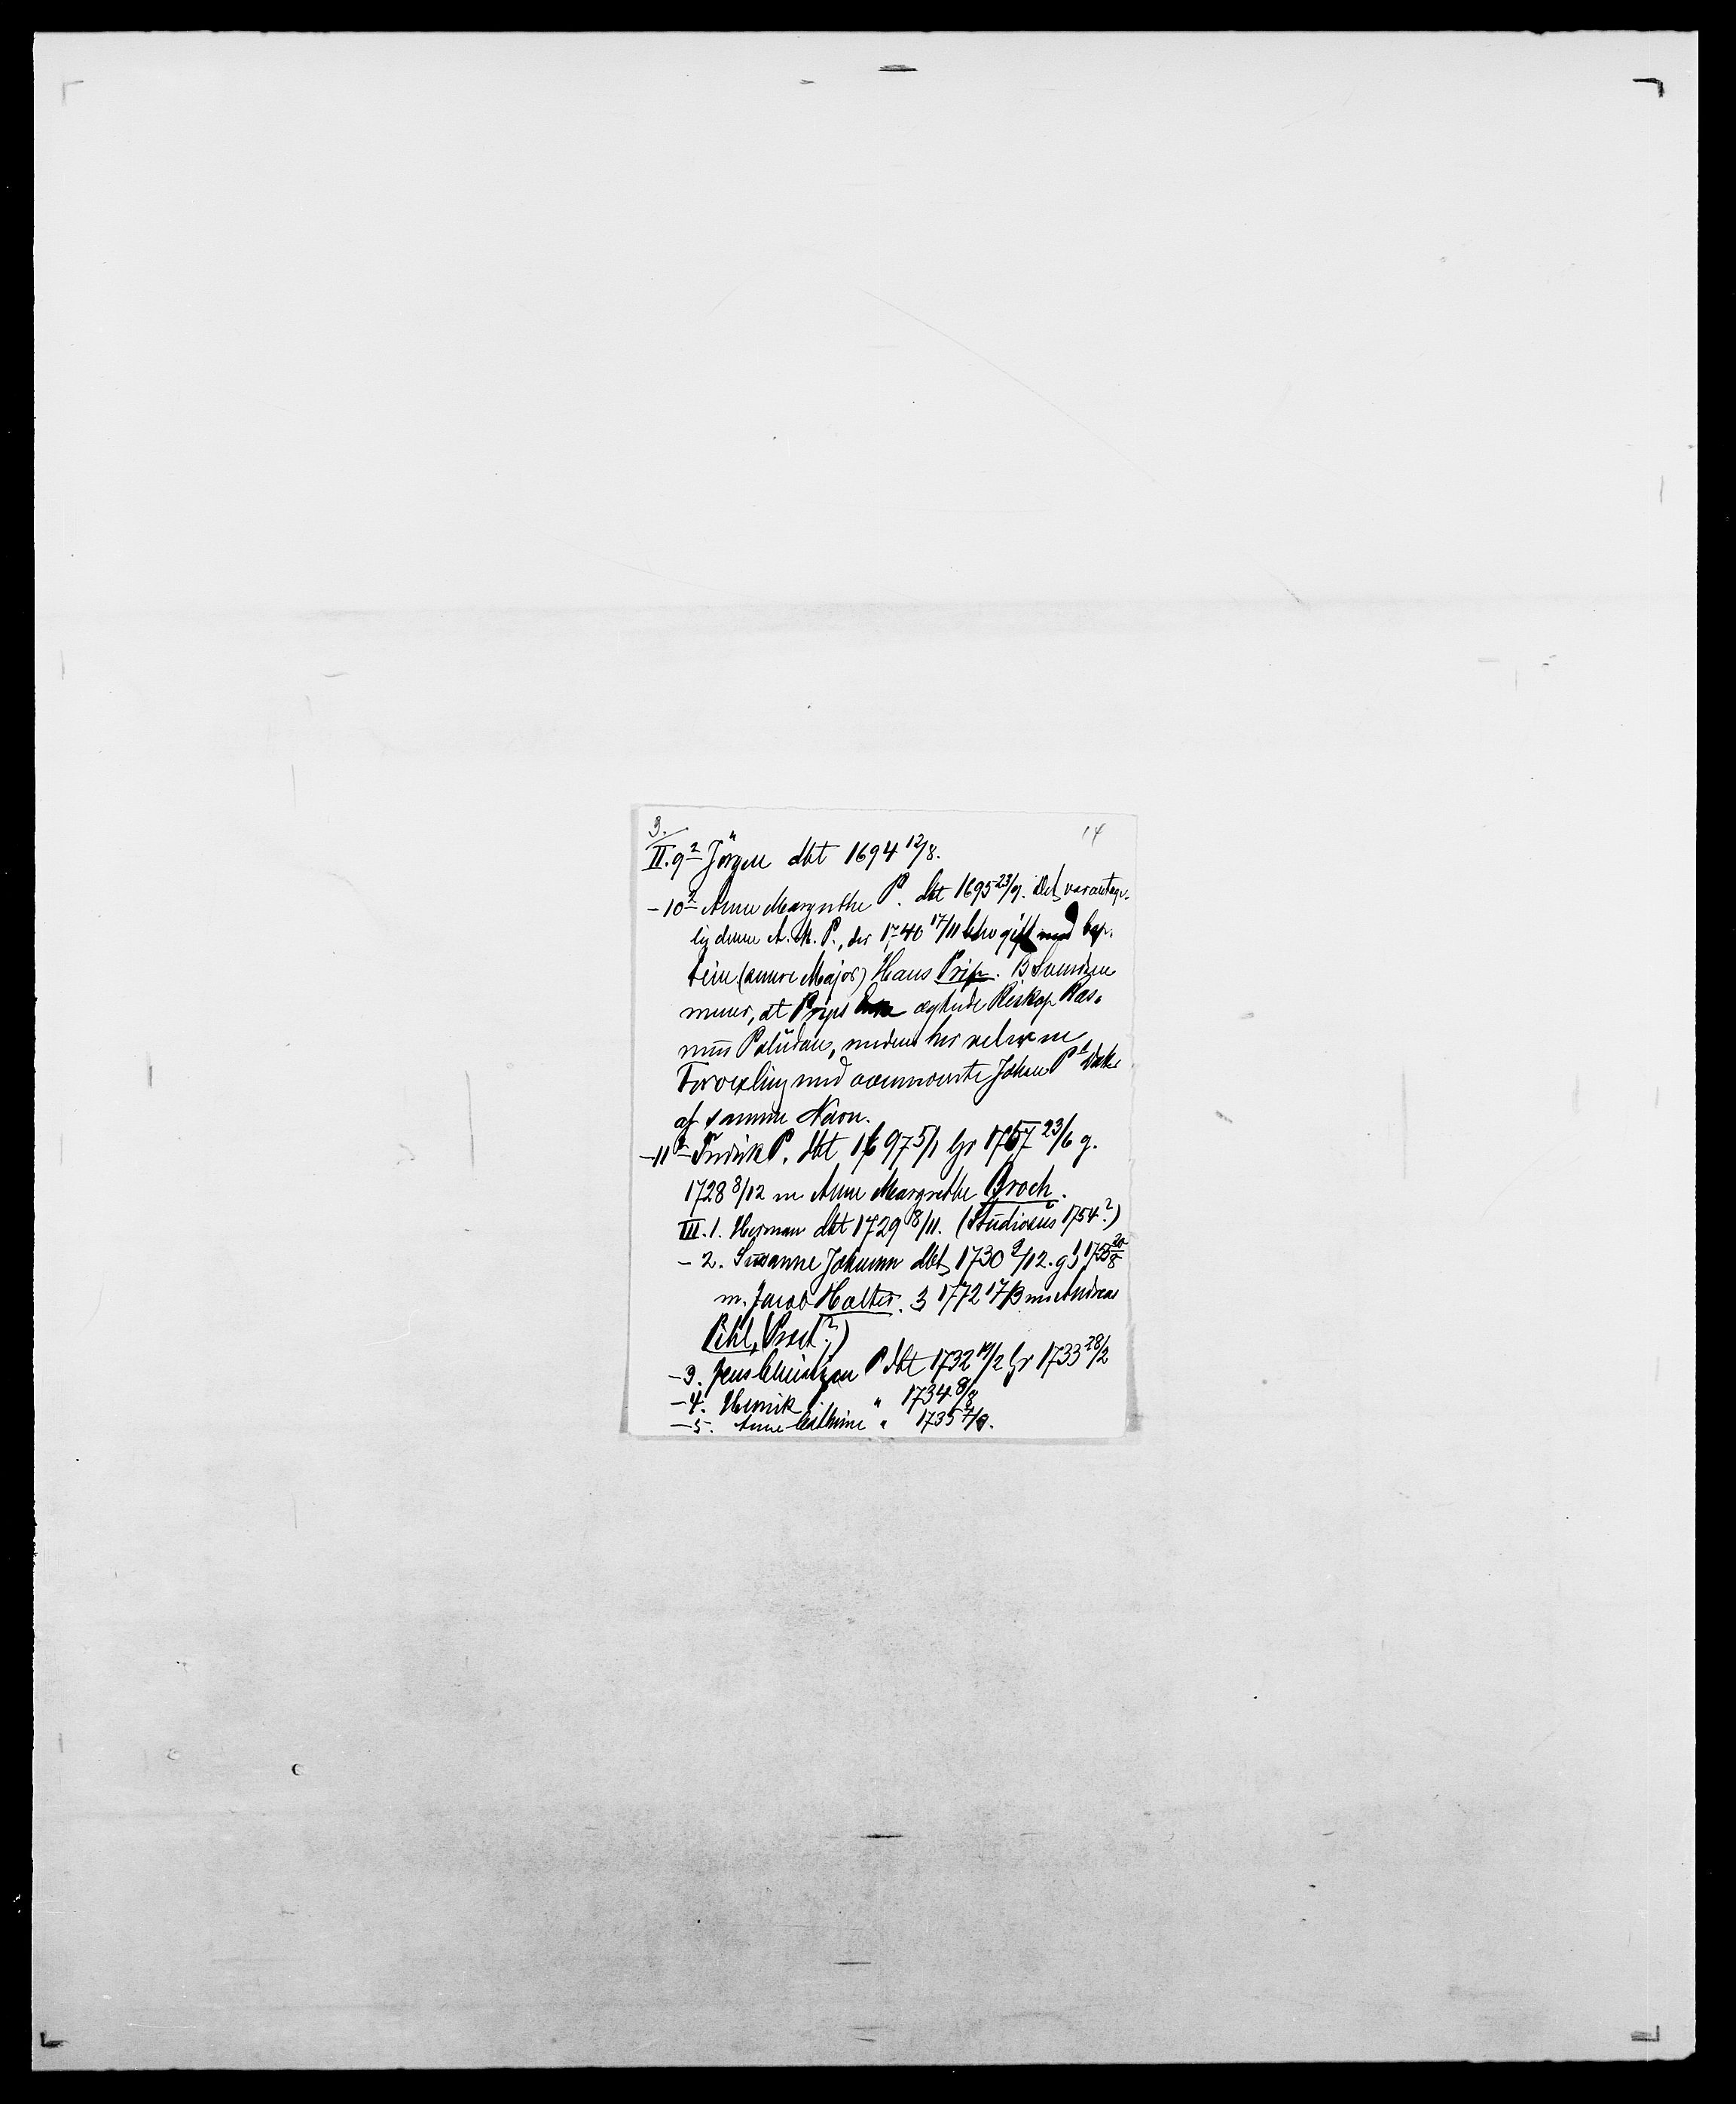 3. 14
II. 9² Jörgen dbt 1694 12/8.
- 10² Anne Margrethe P. dbt 1695 23/9. Det var antage-
lig denne A. M. P., der 1740 17/11 blev gift med Cap-
tein (senere Major) Hans Prip. B Svendsen
mener, at Prips ægtede Biskop Ras-
mus Paludan, medens her vel er en
Forvexling med ovennævnte Johan P.s Datter
af samme Navn.
- 11² Fredrik P. dbt 1697 5/1 bgr 1757 23/6 g.
1728 8/12 m Anne Margrethe Broch.
III. 1. Herman dbt 1729 8/11. (Studiosus 1754?)
- 2. Susanne Johanne dbt 1730 9/12. g 1 1755 20/8
m. Jacob Holter. 3 1772 17/3 m Andreas
Pihl, Prost?)
- 3. Jens Christian P dbt 1732 19/2 bgr 1733 28/2
- 4. Henrik " 1734 8/8
- 5. Anne Cathrine " 1735 7/9.